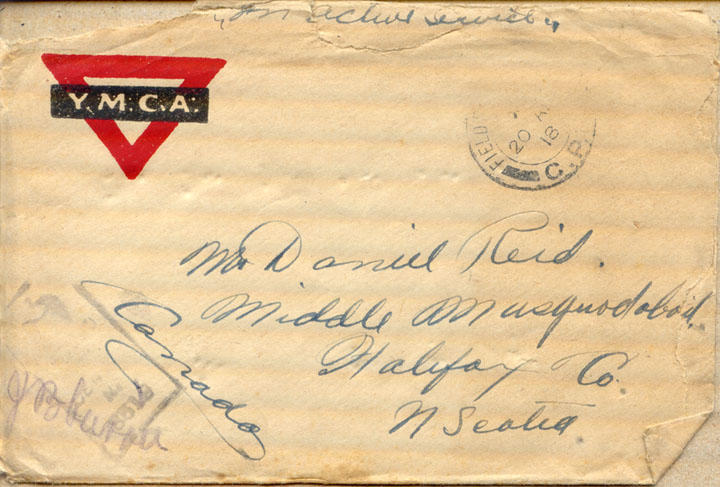 "On active service"
Y.M.C.A.
FIELD
20
18
C.P.
Mr Daniel Reid.
Middle Musquodoboit,
Halifax Co.
N Scotia
Canada